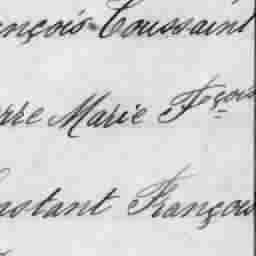 ençois-Toussaint
erre Marie Fçois
nstant François